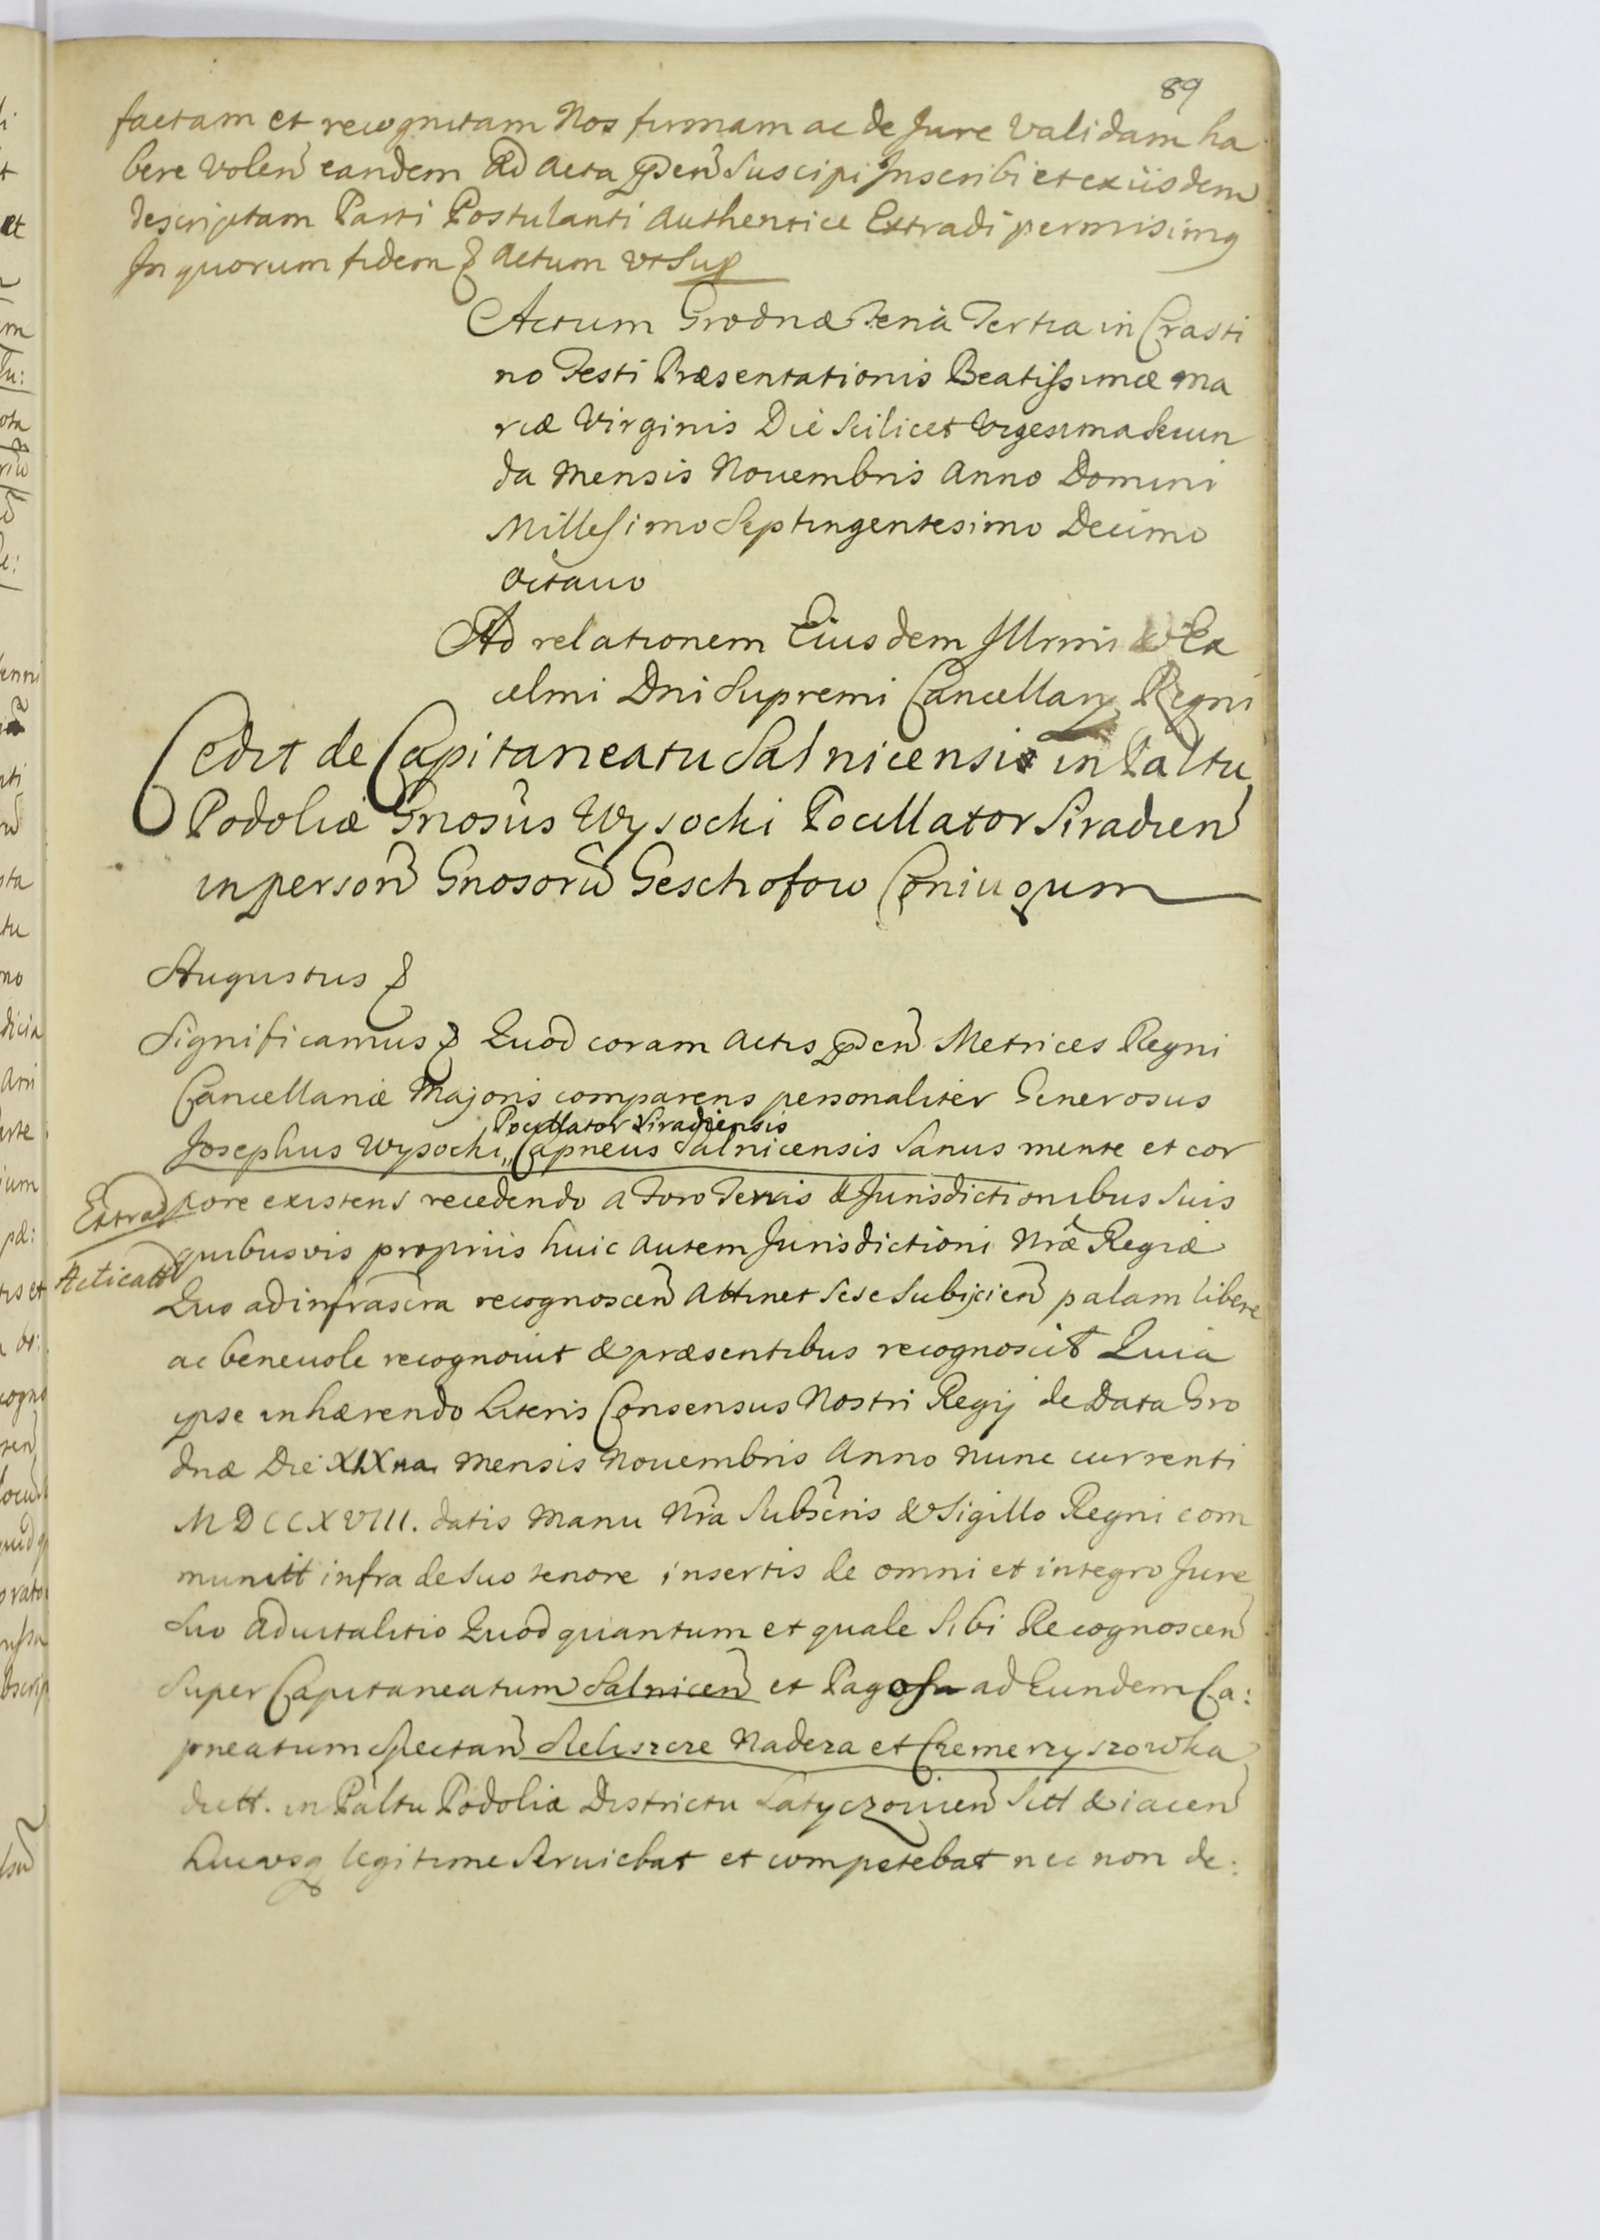 89
factam et recognitam Nos firmam ac de Jure validam ha
bere volen eandem Ad Acta pden Suscipi Inscribi et ex iisdem
descriptam Parti Postulanti Authentice Extradi permisimq
In quorum fidem & Actum vt Sup
Actum Grodnæ Feria Tertia in Crasti
no Festi Præsentationis Beatissimæ Ma
riæ Virginis Die Scilicet Vigesima Secun
da Mensis Nouembris Anno Domini
Millesimo Septingentesimo Decimo
Octauo
Ad relationem Eiusdem Illrmi & Ex
celmi Dni Supremi Cancellarÿ Regni
Cedit de Capitaneatu Salnicensi in Paltu
Podoliæ Gnosus Wysocki Pocillator Siradien
in person Gnosorũ Geschofow Coniugum
Augustus &
Significamus & Quod coram Actis pden Metrices Regni
Cancellariæ Majoris comparens personaliter Generosus
Pocillator Siradiensis
Josephus Wysocki,, Capneus Salnicensis Sanus mente et cor
Extrad
pore existens recedendo a Foro Terris & Jurisdictionibus suis
quibusvis propriis huic autem Jurisdictioni Nræ Regiæ
Acticatt
Quo ad infrascra recognoscen Attinet Sese Subijcien palam libere
ac beneuole recognouit & præsentibus recognoscit Quia
ipse inhærendo Literis Consensus Nostri Regij de Data Gro
dnæ Die XIXna Mensis Nouembris Anno nunc currenti
MDCCXVIII. datis Manu Nra Subscris & Sigillo Regni com
munitt infra de suo tenore insertis de omni et integro Jure
Suo Aduitalitio Quod quantum et quale Sibi Recognoscen
Super Capitaneatum Salnicen et Pagos ad Eundem Ca:
pneatum Spectan Seliszcze Nadera et Chemerzyszowka
dictt. in Paltu Podoliæ Districtu Latyczouien Sitt & iacen
hucvsq legitime Seruiebat et competebat nec non de: